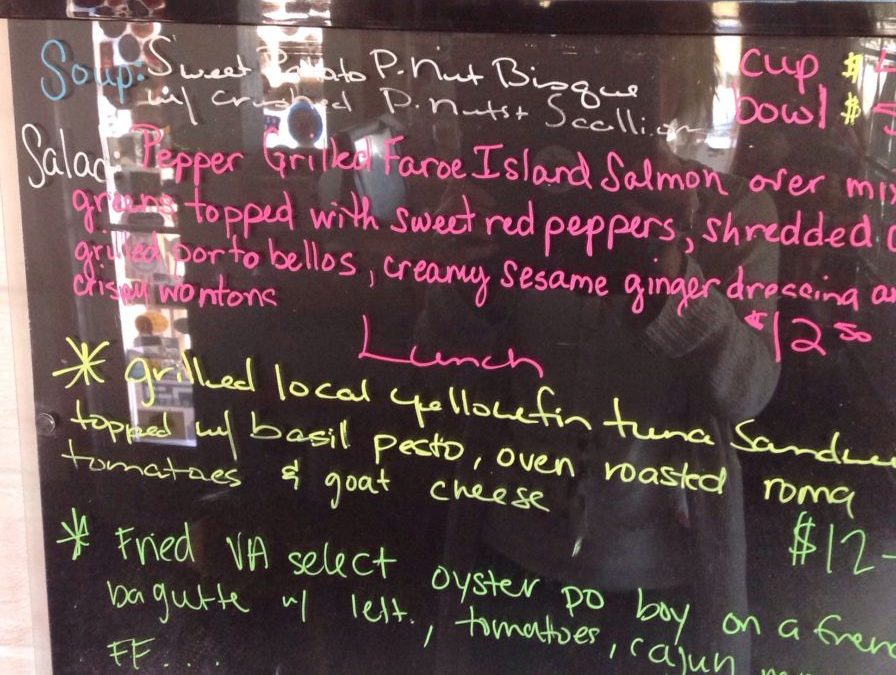 Soup: Sweet Potato P.Nut Bisque cup $
w/ crushed P.nuts + Scallion bowl $
Salad: Pepper Grilled Faroe Island Salmon over
greens topped with sweet red peppers, shredded
grilled portobellos, creamy sesame ginger dressing
crispy wontons
$12 50
Lunch
* grilled local yellowfin tuna
topped w/ basil pesto, oven roasted roma
tomatoes & goat cheese
$12-
* Fried VA select oyster po boy on a
bagutte w/ lett., tomatoes, cajun
FF....